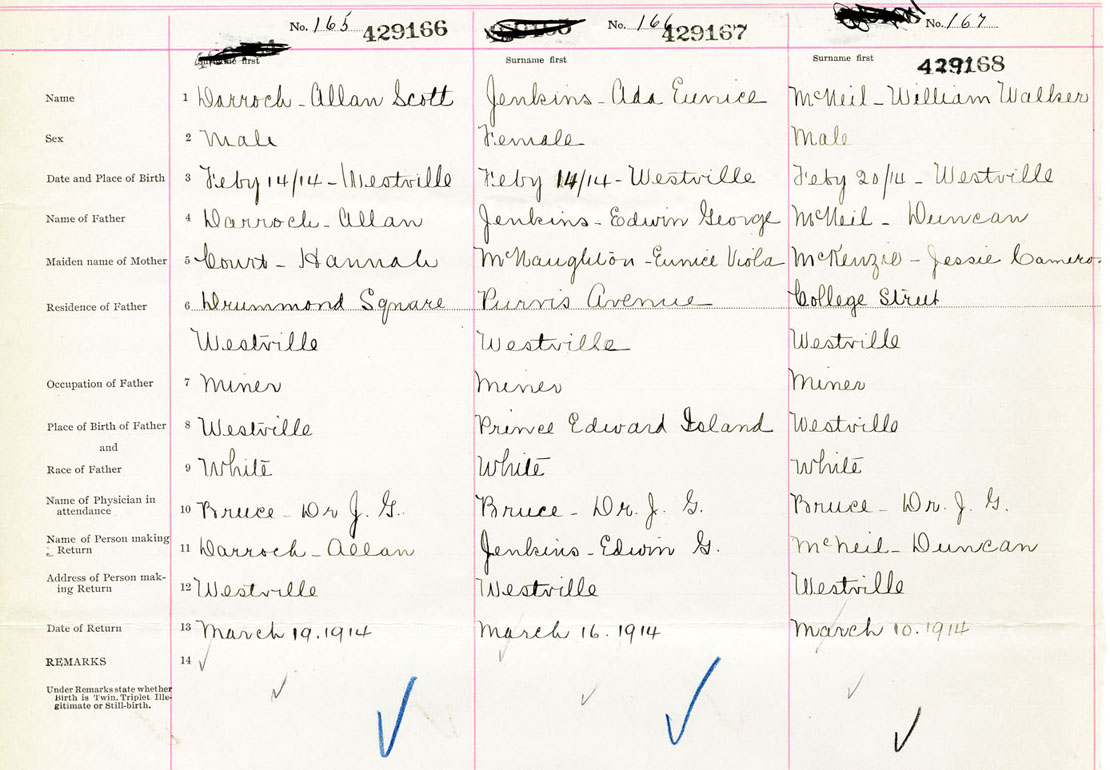 No. 165 429166 No. 166 429167 No. 167
Surname first Surname first Surname first 429168
Name 1 Darroch - Allan Scott Jenkins - Ada Eunice McNeil - William Walker
Sex 2 Male Female Male
Date and Place of Birth 3 Feby 14/14 - Westville Feby 14/14 - Westville Feby 20/14 - Westville
Name of Father 4 Darroch - Allan Jenkins - Edwin George McNeil - Duncan
Maiden name of Mother 5 Court - Hannah McNaughton - Eunice Viola McKenzie - Jessie Camero
Residence of Father 6 Drummond Square Purvis Avenue College Street
Westville Westville Westville
Occupation of Father 7 Miner Miner Miner
Place of Birth of Father 8 Westville Prince Edward Island Westville
and
Race of Father 9 White White White
Name of Physician in
attendance 10 Bruce - Dr J. G. Bruce - Dr. J. G. Bruce - Dr. J. G.
Name of Person making
Return 11 Darroch - Allan Jenkins - Edwin G. McNeil - Duncan
Address of Person mak-
ing Return 12 Westville Westville Westville
Date of Return 13 March 19. 1914 March 16. 1914 March 10. 1914
REMARKS 14
Under Remarks state whether
Birth is Twin, Triplet, Ille-
gitimate or Still-birth.